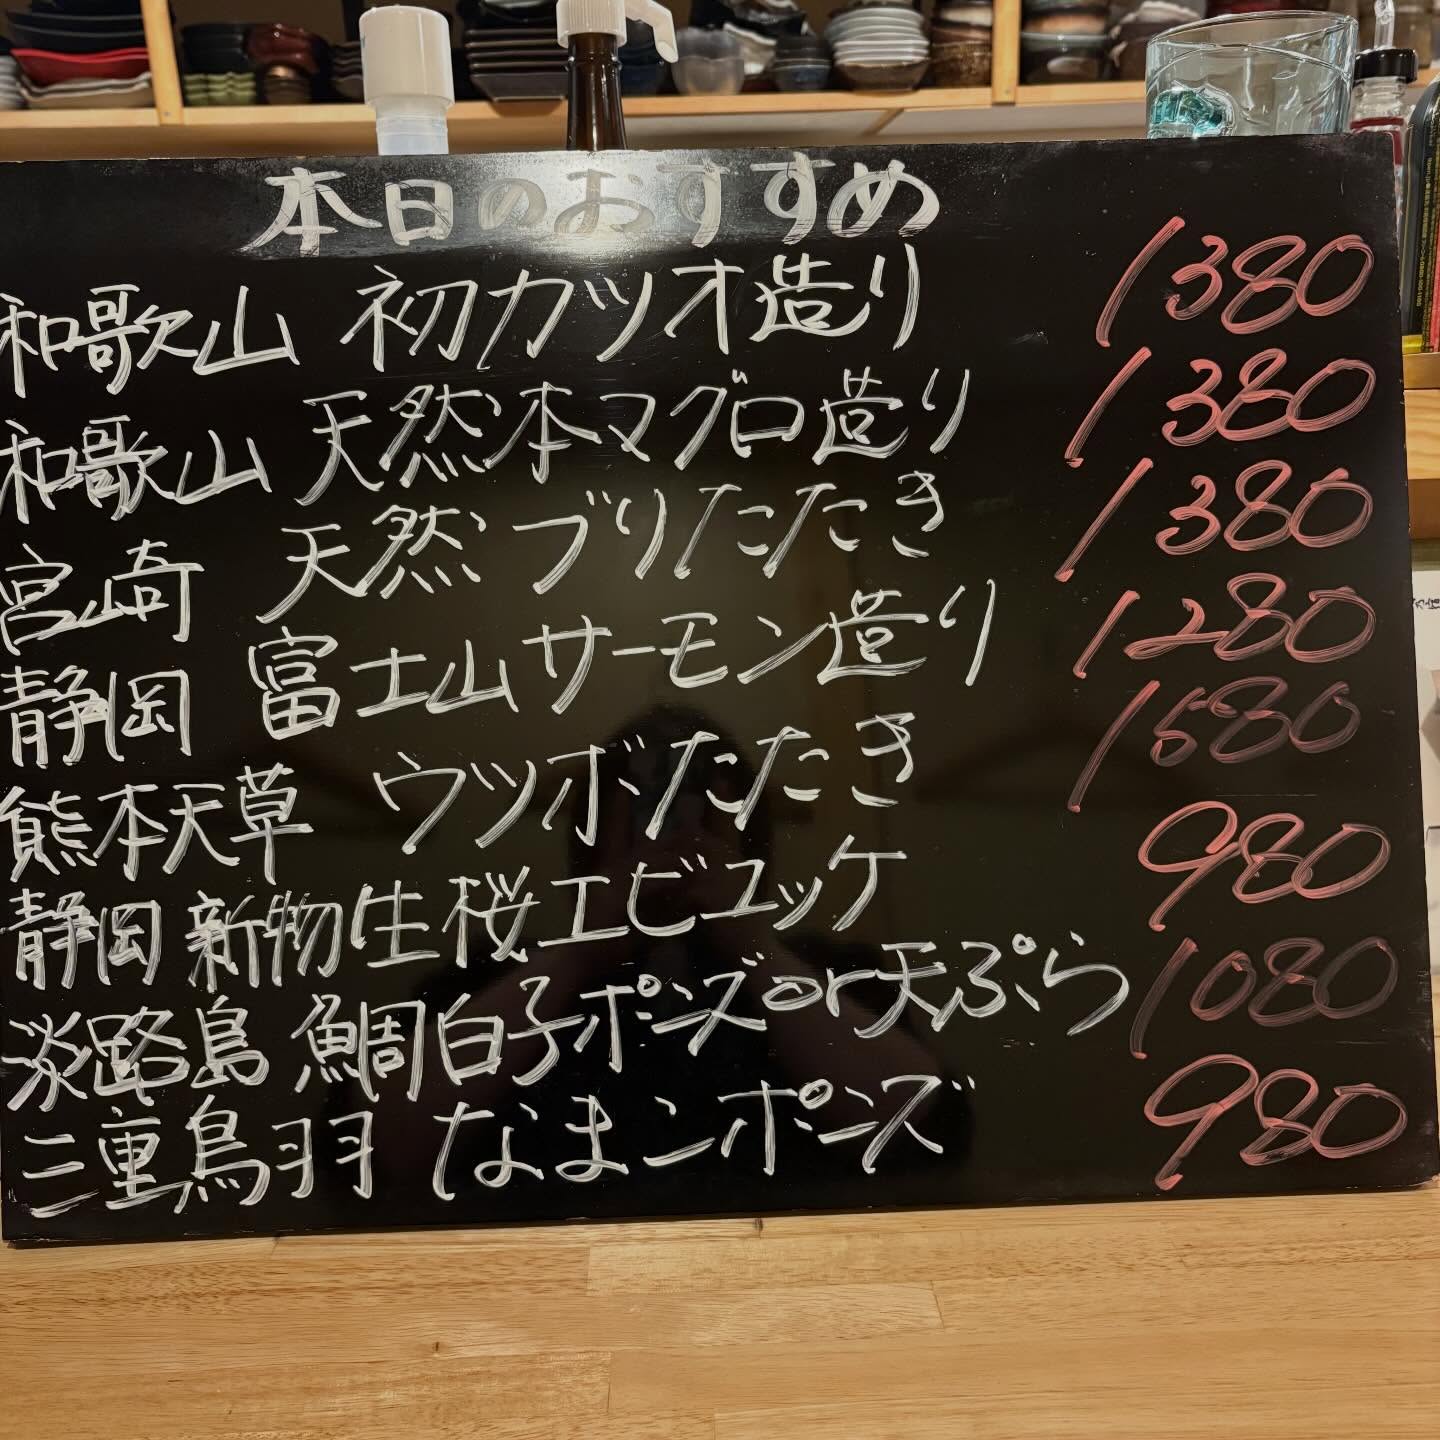 本日のおすすめ
和歌山 初カツオ造り 1380
和歌山 天然本マグロ造り 1380
宮崎 天然ブリたたき 1380
静岡 富士山サーモン造り 1280
熊本天草 ウツボたたき 1580
静岡 新物生桜エビユッケ 980
淡路島 鯛白子ポンズor天ぷら 1080
三重鳥羽 なまこポンズ 980